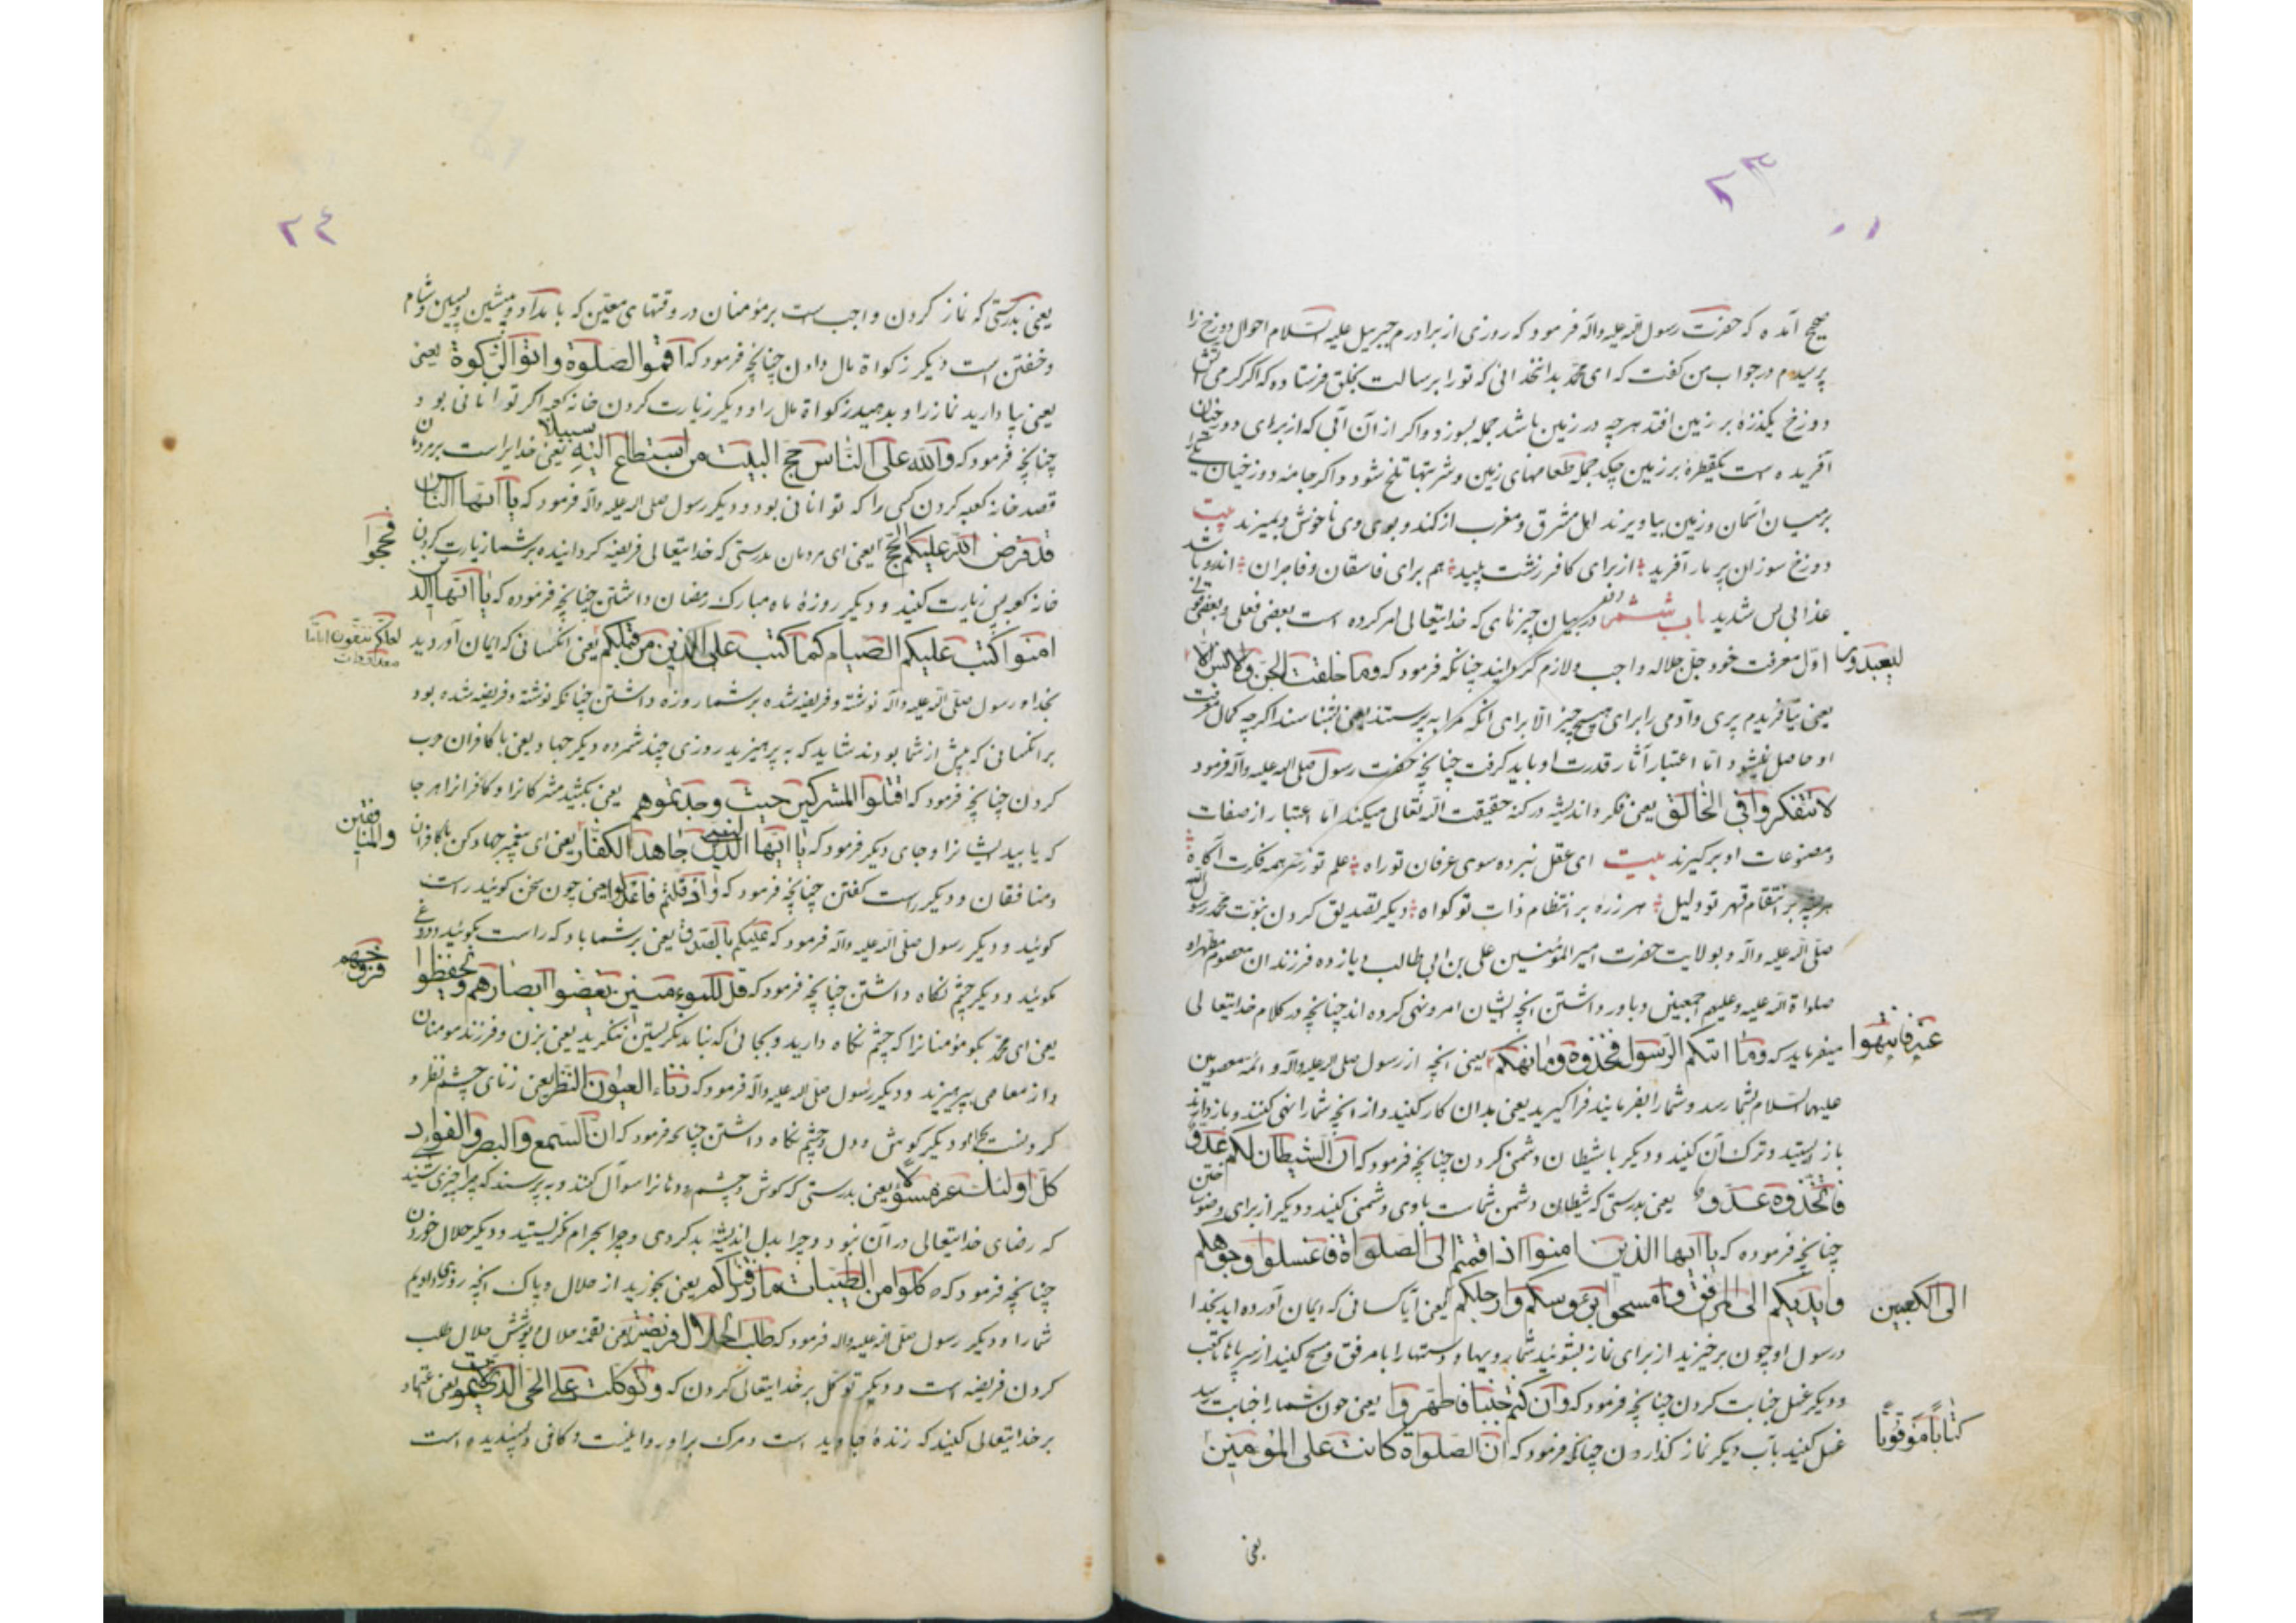 ٢٣
صحیح آمده که حضرت رسول صلی الله علیه وآله فرمود که روزی از برادرم جبرییل علیه السلام احوال دوزخ را
پرسیدم در جواب من گفت که ای محمد بدان خدائی که تو را برسالت بخلق فرستاده که اگر کرمی آتش
دوزخ یکذره بر زمین افتد هرچه در زمین باشد جمله بسوزد و اگر از آن آبی که از برای دوزخیان
آفریده است یکقطره بر زمین چکد جمله طعامهای زمین و شربتها تلخ شود و اگر جامه دوزخیان
برمیان آسمان و زمین بیاویزند اهل مشرق و مغرب از کند و بوی وی ناخوش بمیرند بیت
دوزخ سوزان پر بار آفرید از برای کافر زشت پلید هم برای فاسقان و فاجران اندرو باشد
عذابی بس شدید باب ششم در بیان چیزهای که خدایتعالی امر کرده است بعضی فعلی و بعضی قولی
اول معرفت خود جل جلاله واجب و لازم گردانید چنانکه فرمود که وما خلقت الجن والانس الا
لیعبدون
یعنی نیافریدم پری و آدمی را برای هیچ چیز الا برای انکه مرا به پرستند یعنی بشناسند اگرچه کمال معرفت
او حاصل نمیشود اما اعتبار آثار قدرت او باید کرفت چنانچه حضرت رسول صلی الله علیه وآله فرمود
لا تتفکروا فی الخالق یعنی فکر و اندیشه در کنه حقیقت الله تعالی میکند اما اعتبار از صفات
ومصنوعات او برکیرند بیت ای عقل نبرده سوی عرفان تو راه علم تو ز سر همه فکرت آکاه
بر انتقام قهر تو دلیل هر ذره بر انتظام ذات تو کواه دیکر تصدیق کردن بنبوت محمد رسول الله
صلی الله علیه وآله و بولایت حضرت امیر المؤمنین علی بن ابی طالب و یازده فرزندان معصوم مطهر او
صلواة الله علیه وعلیهم اجمعین و باور داشتن انچه ایشان امر و نهی کرده اند چنانچه در کلام خدایتعالی
میفرماید که وما اتیکم الرسول فخذوه وما نهیکم یعنی انچه از رسول صلی الله علیه وآله و ائمه معصومین
عنه فانتهوا
علیهم السلام بشما رسد و شما را بفرمایند فراکیرید یعنی بدان کار کنید و از انچه شما را نهی کنند و بازدارند
باز ایستید و ترک آن کنید و دیکر با شیطان دشمنی کردن چنانچه فرمود که ان الشیطان لکم عدو
فاتخذوه عدوا یعنی بدرستی که شیطان دشمن شماست باوی دشمنی کنید و دیکر از برای وضو ساختن
چنانچه فرموده که یا ایها الذین امنوا اذا قمتم الی الصلواة فاغسلوا وجوهکم
وایدیکم الی المرافق وامسحوا برءوسکم وارجلکم یعنی آیا کسانی که ایمان آورده اید بخدا
الی الکعبین
و رسول او چون برخیزید از برای نماز بشوئید شما رویها و دستها را با مرفق و مسح کنید از سر پاها تا کعب
و دیکر غسل جنابت کردن چنانچه فرمود که وان کنتم جنبا فاطهروا یعنی چون شما را جنابت رسید
غسل کنید بآب دیکر نماز کذاردن چنانکه فرمود که ان الصلواة کانت علی المؤمنین
کتابا موقوتا
یعنی
٢٤
یعنی بدرستی که نماز کردن واجب است بر مؤمنان در وقتهای معین که بامداد و پیشین و پسین و شام
و خفتن است دیکر زکواة مال دادن چنانچه فرمود که اقیموا الصلوة واتوا الزکوة یعنی
یعنی بپا دارید نماز را و بدهید زکواة مال را و دیکر زیارت کردن خانه کعبه اکر توانائی بود
چنانچه فرمود که ولله علی الناس حج البیت من استطاع الیه سبیلا یعنی خدایراست بر مردمان
قصد خانه کعبه کردن کسی را که توانائی بود و دیکر رسول صلی الله علیه وآله فرمود که یا ایها الناس
قد فرض الله علیکم الحج یعنی ای مردمان بدرستی که خدایتعالی فریضه کردانیده بر شما زیارت کردن
فحجوا
خانه کعبه پس زیارت کنید و دیکر روزه ماه مبارک رمضان داشتن چنانچه فرموده که یا ایها الذین
امنوا کتب علیکم الصیام کما کتب علی الذین من قبلکم یعنی انکسانی که ایمان آوردید
لعلکم تتقون ایاما معدودات
بخدا و رسول صلی الله علیه وآله نوشته و فریضه شده بر شما روزه داشتن چنانکه نوشته و فریضه شده بود
بر انکسانی که پیش از شما بودند شاید که به پرهیزید روزی چند شمرده دیکر جهاد یعنی با کافران حرب
کردن چنانچه فرمود که اقتلوا المشرکین حیث وجدتموهم یعنی بکشید مشرکانرا و کافرانرا هر جا
که یابید ایشانرا و جای دیکر فرمود که یا ایها النبی جاهد الکفار یعنی ای پیغمبر جهاد کن با کافران
والمنافقین
ومنافقان و دیکر راست کفتن چنانچه فرمود که واذ قلتم فاعدلوا یعنی چون سخن کوئید راست
کوئید و دیکر رسول صلی الله علیه وآله فرمود که علیکم بالصدق یعنی بر شما باد که راست بکوئید و دروغ
مکوئید و دیکر چشم نکاه داشتن چنانچه فرمود که قل للموءمنین یغضوا ابصارهم ویحفظوا
فروجهم
یعنی ای محمد بکو مؤمنانرا که چشم نکاه دارید و بجائی که نباید نکریستن ننکرید یعنی بزن و فرزند مومنان
و از معاصی بپرهیزند و دیکر رسول صلی الله علیه وآله فرمود که زناء العیون النظر یعنی زنای چشم نظر
کردنست و دیکر کوش و دل و چشم نکاه داشتن چنانچه فرمود که ان السمع والبصر والفؤاد
کل اولئک عنه مسؤلا یعنی بدرستی که کوش و چشم و دلها را سوآل کنند و به پرسند که چرا چیزی شنید
که رضای خدایتعالی در آن نبود و چرا بدل اندیشه بد کردی و چرا بحرام نکریستید و دیکر حلال خوردن
چنانچه فرمود که کلوا من الطیبات ما رزقناکم یعنی بخورید از حلال و پاک انچه روزی دادیم
شما را و دیکر رسول صلی الله علیه وآله فرمود که طلب الحلال فریضة یعنی لقمه حلال و پوشش حلال طلب
کردن فریضه است و دیکر توکل بر خدایتعالی کردن که وتوکلت علی الحی الذی لا یموت یعنی اعتماد
بر خدایتعالی کنید که زنده جاوید است و مرک بر او روا نیست و کافی و پسندیده است